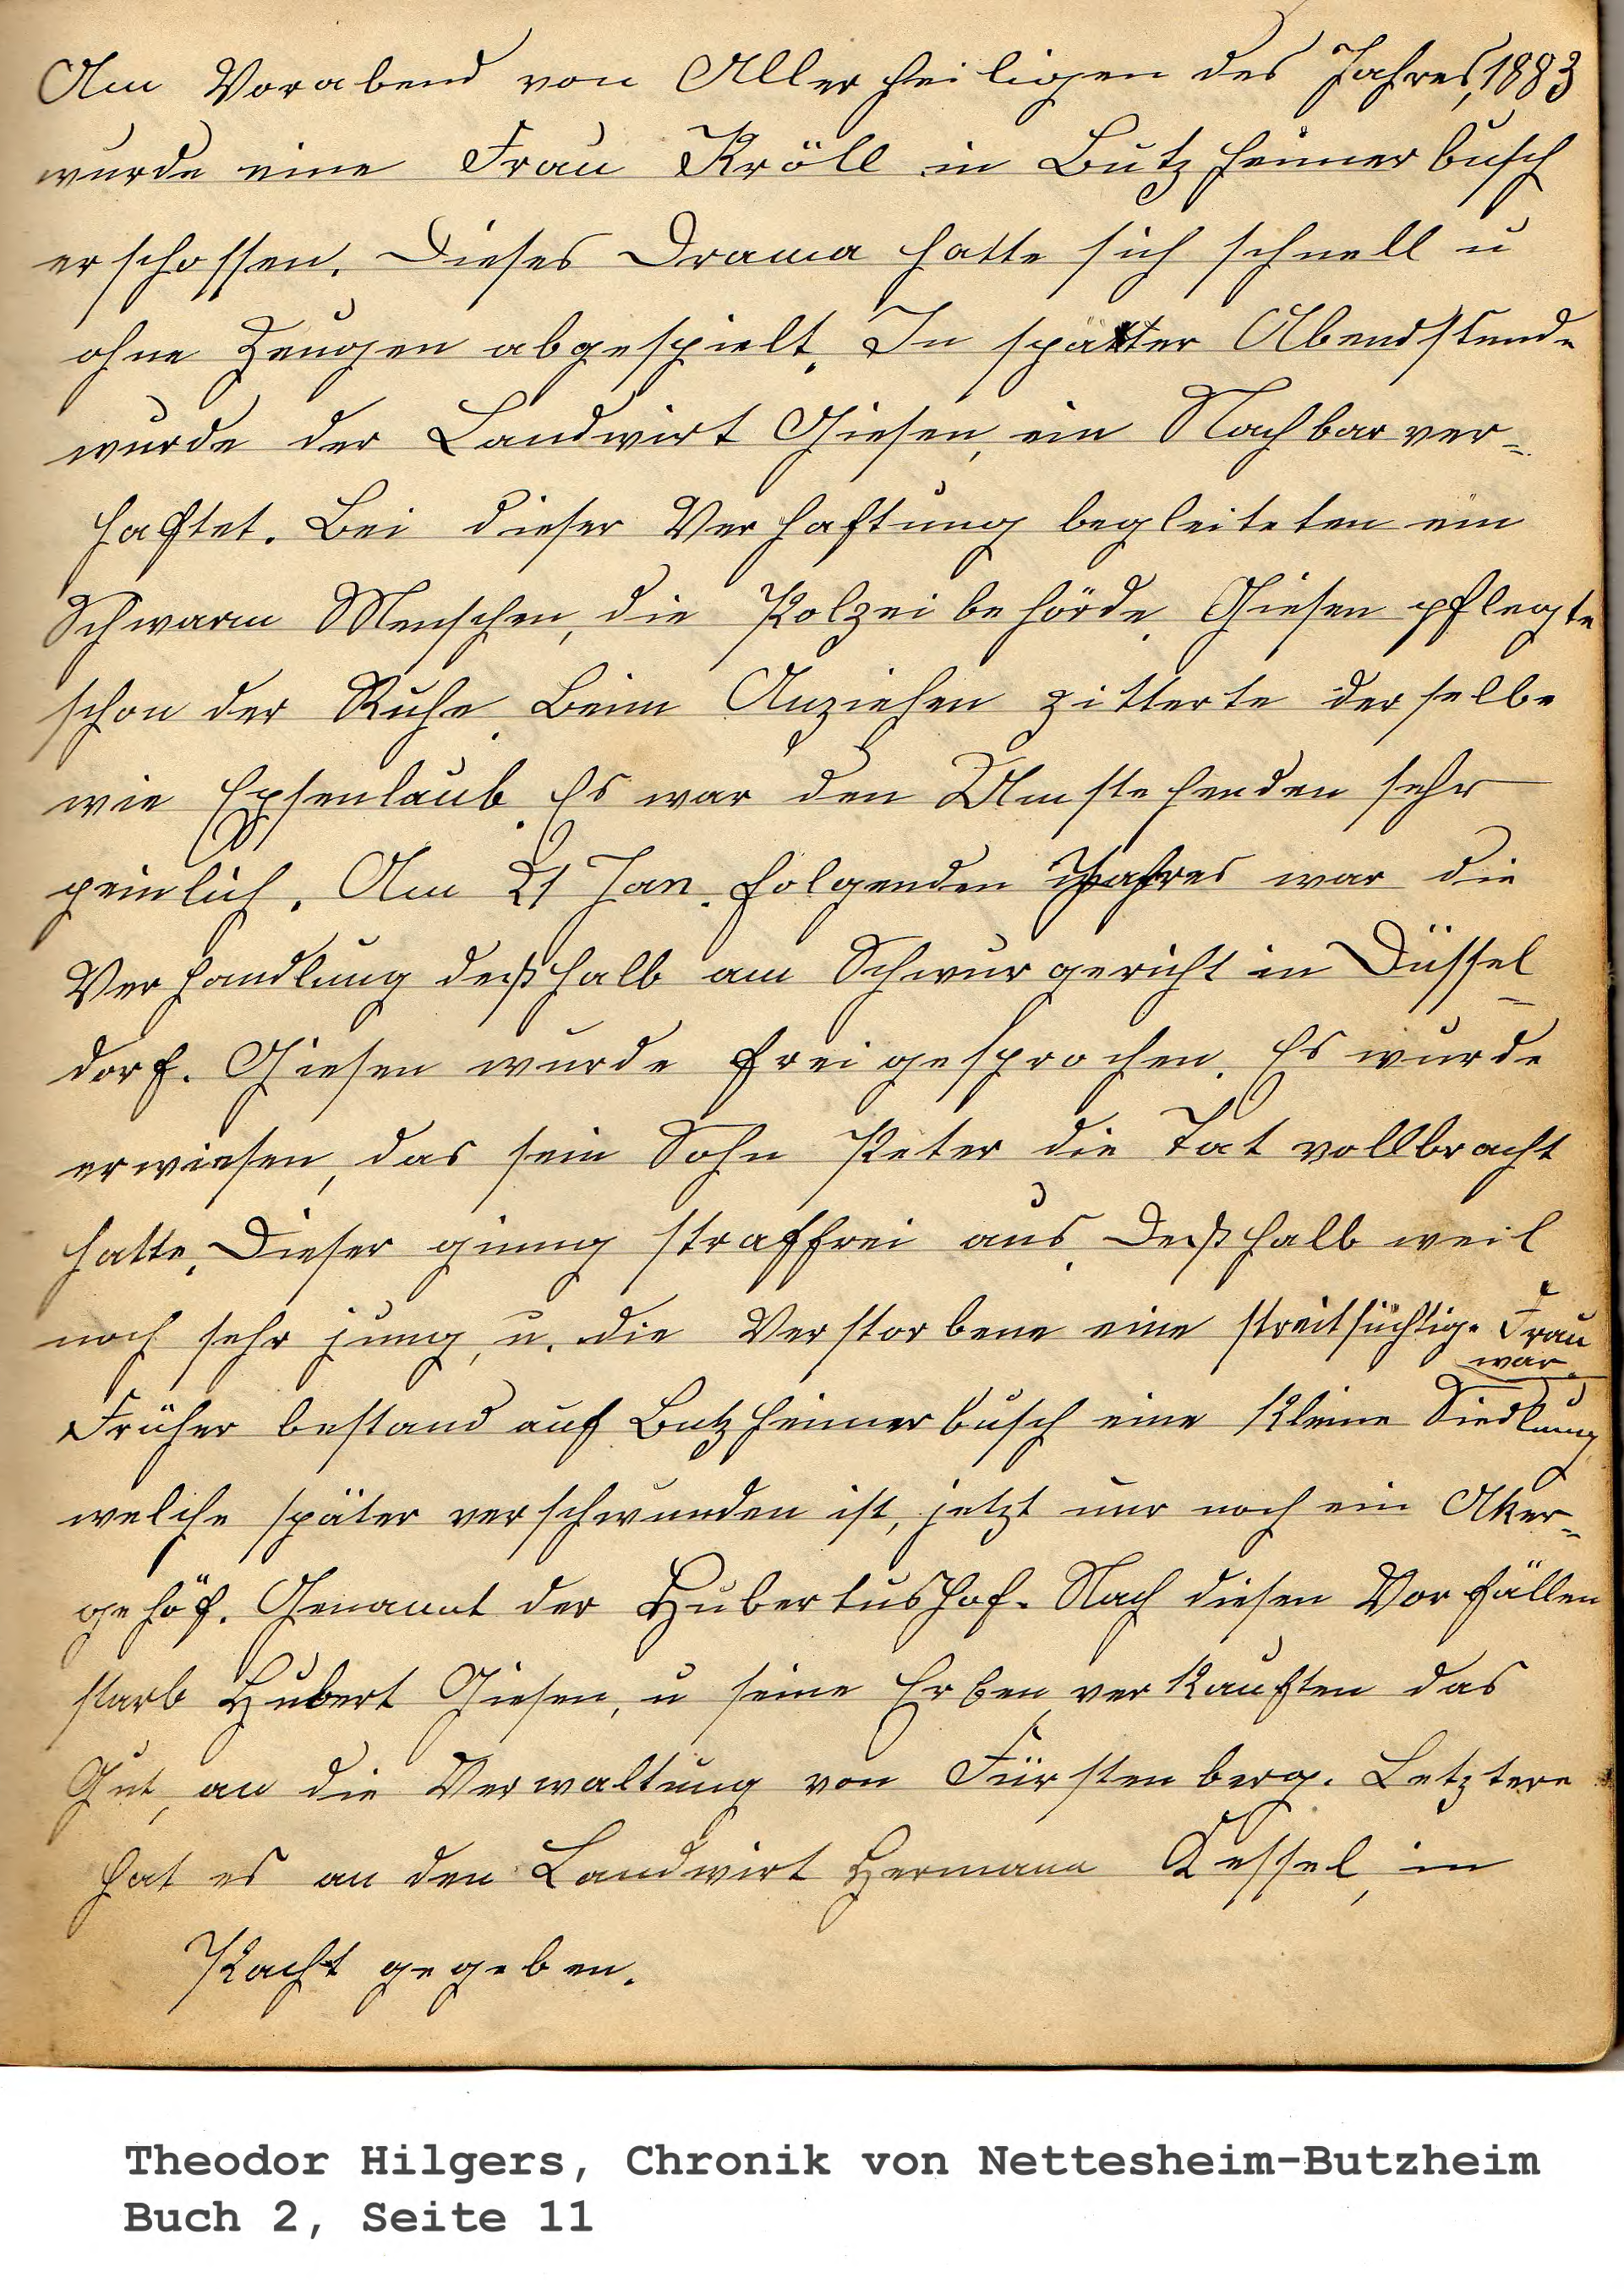 Am Vorabend von Allerheiligen des Jahres, 1883
wurde eine Frau Kröll in Butzheimerbusch
erschossen. Dieses Drama hatte sich schnell u
ohne Zeugen abgespielt. In später Abendstunde
wurde der Landwirt Giesen, ein Nachbar ver=
haftet. Bei dieser Verhaftung begleiteten ein
Schwarm Menschen, die Polzeibehörde. Giesen pflegte
schon der Ruhe. Beim Anziehen zitterte derselbe
wie Epsenlaub. Es war den Umstehenden sehr
peinlich. Am 21 Jan. folgenden Jahres war die
Verhandlung deßhalb am Schwurgericht in Düssel=
dorf. Giesen wurde freigesprochen. Es wurde
erwiesen, das sein Sohn Peter die Tat vollbracht
hatte. Dieser ging straffrei aus. Deßhalb weil
noch sehr jung, u. die Verstorbene eine streitsüchtige Frau
war.
Früher bestand auf Butzheimerbusch eine kleine Siedlung
welche später verschwunden ist, jetzt nur noch ein Aker=
gehöf. Genannt der Hubertushof. Nach diesen Vorfällen
starb Hubert Giesen, u seine Erben verkauften das
Gut, an die Verwaltung von Fürstenberg. Letztere
hat es an den Landwirt Hermann Kessel, in
Pacht gegeben.
Theodor Hilgers, Chronik von Nettesheim-Butzheim
Buch 2, Seite 11